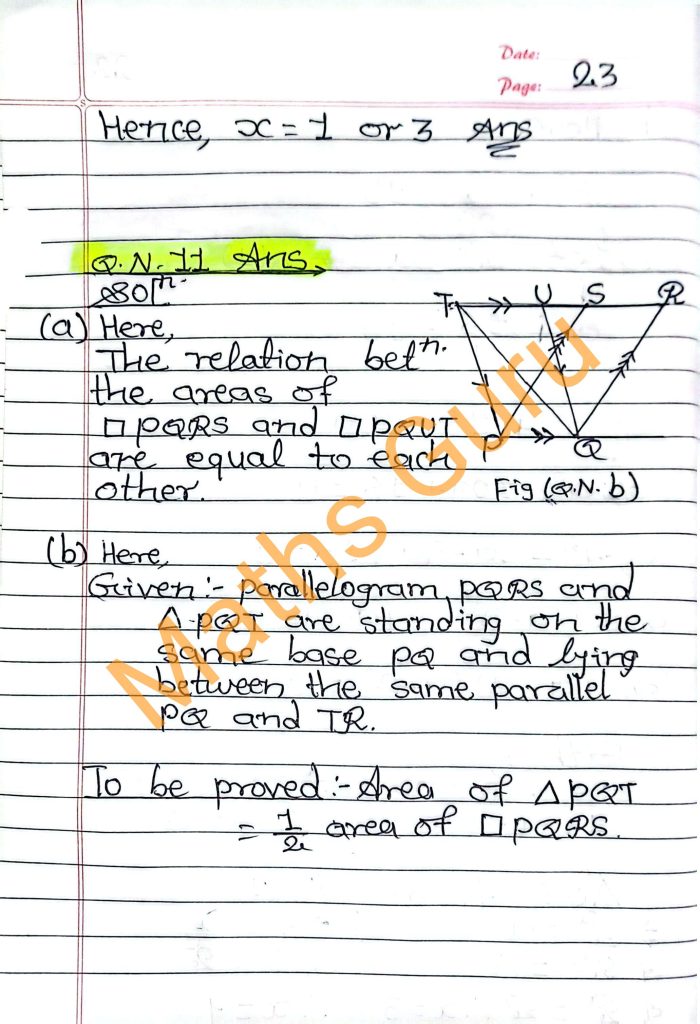 Date:
Page: 23
Hence, x = 1 or 3 Ans
Q.N. 11 Ans.
Solⁿ.
(a) Here,
The relation betⁿ.
the areas of
□PQRS and □PQUT
are equal to each
other.
T U S R
P Q
Fig (Q.N. b)
(b) Here,
Given:- parallelogram PQRS and
△PQT are standing on the
same base PQ and lying
between the same parallel
PQ and TR.
To be proved:- Area of △PQT
= 1/2 area of □PQRS.
Maths Guru